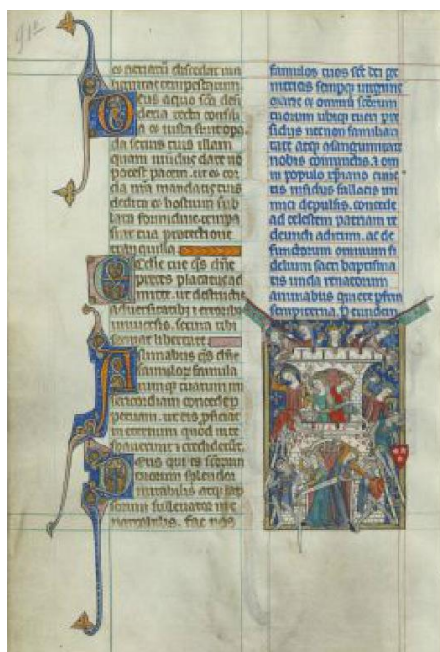 91a
es aeriarū discedat ma
lignitas tempestatum.
Deus a quo sc̄a desi
deria recta consili
a et iusta sunt ope
ra da seruis tuis illam
quam mundus dare nō
potest pacem. ut et cor
da nr̄a mandatis tuis
dedita et hostium sub
lata formidine tempo
ra sint tua protectione
tranquilla.
Ecclesie tue q̄s dn̄e
preces placatus ad
mitte. ut destructis
aduersitatibꝫ et erroribꝫ
uniuersis. secura tibi
seruiat libertate.
Animabus q̄s dn̄e
famuloꝝ famula
rumqꝫ tuarum mi
sericordiam concede ꝑ
petuam. ut eis ꝓficiat
in eternum quod in te
sperauerunt et crediderūt.
Deus qui es sc̄orum
tuorum splendor
mirabilis atqꝫ lap
sorum subleuator ine
narrabilis. fac nos
famulos tuos sc̄e dei ge
nitricis semperqꝫ uirginis
marie et omniū sc̄orum
tuorum ubiqꝫ tueri pre
sidijs necnon familiari
tate atqꝫ consanguinitate
nobis coniunctis. et om
ni populo xp̄iano cunc
tis insidijs fallacis ini
mici depulsis. concede
ad celestem patriam re
deundi aditum. ac de
functorum omnium fi
delium sacri baptisma
tis unda renatorum
animabus quiete ꝑfrui
sempiterna. ꝑ eundem